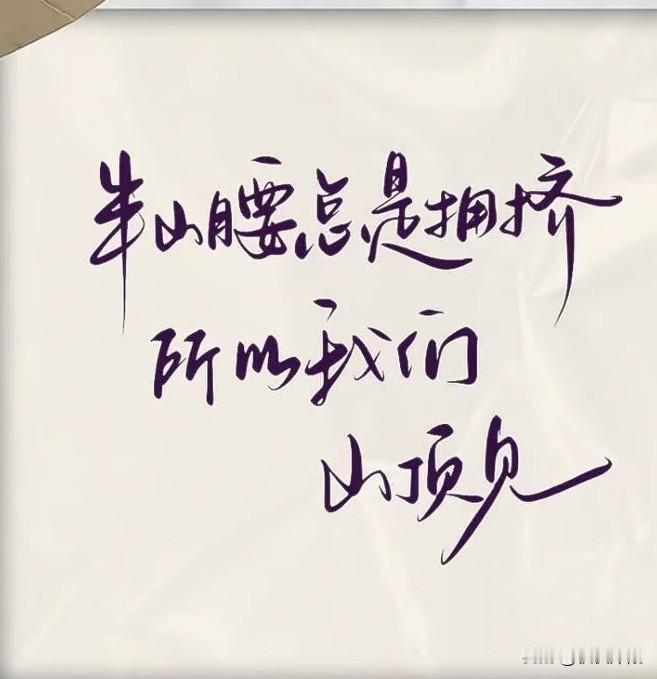 半山腰总是拥挤
所以我们
山顶见